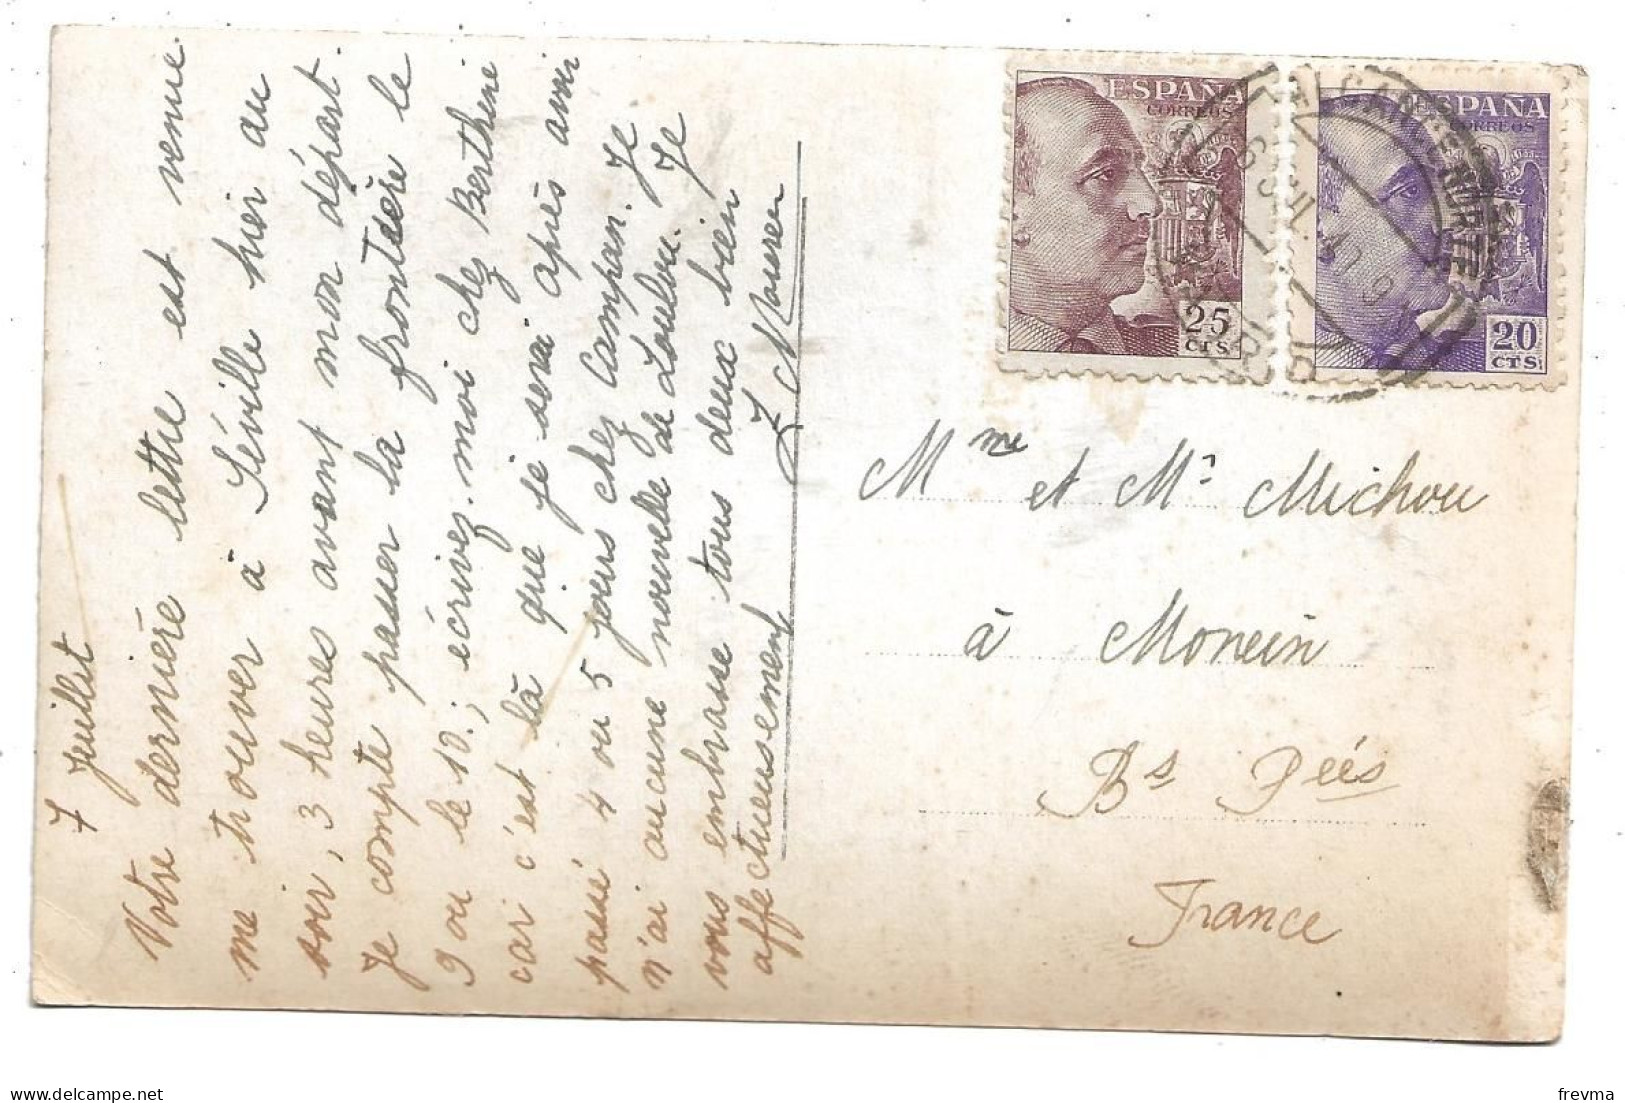 7 Juillet
Votre dernière lettre est venue
me trouver à Séville hier au
soir, 3 heures avant mon départ.
Je compte passer la frontière le
9 ou le 10; écrivez-moi chez Berthine
car c'est là que je serai après avoir
passé 4 ou 5 jours chez Campan. Je
n'ai aucune nouvelle de Loulou. Je
vous embrasse tous deux bien
affectueusement
ESPAÑA
CORREOS
25
CTS
ESPAÑA
CORREOS
20
CTS
Mme et Mr Michou
à Monein
Bs Péés
France
frevma